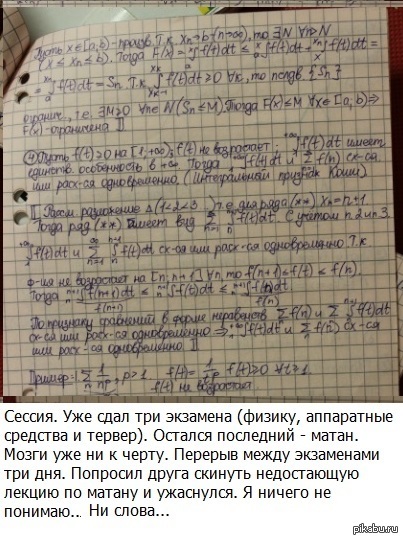 Пусть x∈[a,b) - произв. Т.к. xn→b (n→∞), то ∃N ∀n>N
(x ≤ xn ≤ b). Тогда F(x) = ∫f(t)dt ≤ ∫f(t)dt + ∫f(t)dt =
= ∫f(t)dt = Sn. Т.к. ∫f(t)dt ≥ 0 ∀k, то послед. {Sn}
огранич., т.е. ∃M≥0 ∀n∈N (Sn≤M). Тогда F(x)≤M ∀x∈[a,b) ⇒
F(x) - ограничена ]]
④ Пусть f(t)≥0 на [1,+∞); f(t) не возрастает; ∫f(t)dt имеет
единств. особенность в +∞. Тогда ∫f(t)dt и Σf(n) сх-ся
или расх-ся одновременно. (Интегральный признак Коши).
[[ Рассм разложение Δ(1<2<3...) т.е. для ряда (**) Xn=n+1.
Тогда ряд (**) имеет вид Σ∫f(t)dt. С учётом п.2 и п.3.
∫f(t)dt и Σ∫f(t)dt сх-ся или расх-ся одновременно Т.к.
ф-ия не возрастает на [n; n+1] ∀n, то f(n+1)≤f(t)≤f(n).
Тогда ∫f(n+1)dt ≤ ∫f(t)dt ≤ ∫f(n)dt
f(n+1) f(n)
По признаку сравнений в форме неравенств Σf(n) и Σ∫f(t)dt
сх-ся или расх-ся одновременно ⇒ ∫f(t)dt и Σf(n) сх-ся
или расх-ся одновременно ]]
Пример: Σ 1/n^p, p>1 f(t)=1/t^p f(t)≥0 ∀t≥1.
f(t) не возрастает
Сессия. Уже сдал три экзамена (физику, аппаратные
средства и тервер). Остался последний - матан.
Мозги уже ни к черту. Перерыв между экзаменами
три дня. Попросил друга скинуть недостающую
лекцию по матану и ужаснулся. Я ничего не
понимаю... Ни слова...
pikabu.ru